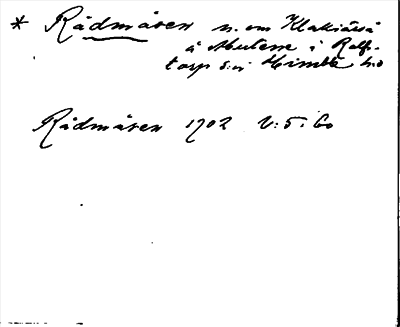 * Rådmåsen n. om Klakiåsså
å Mulens i Rolfs-
torp s:n Himble hd
Rådmåsen 1902 V:5:60